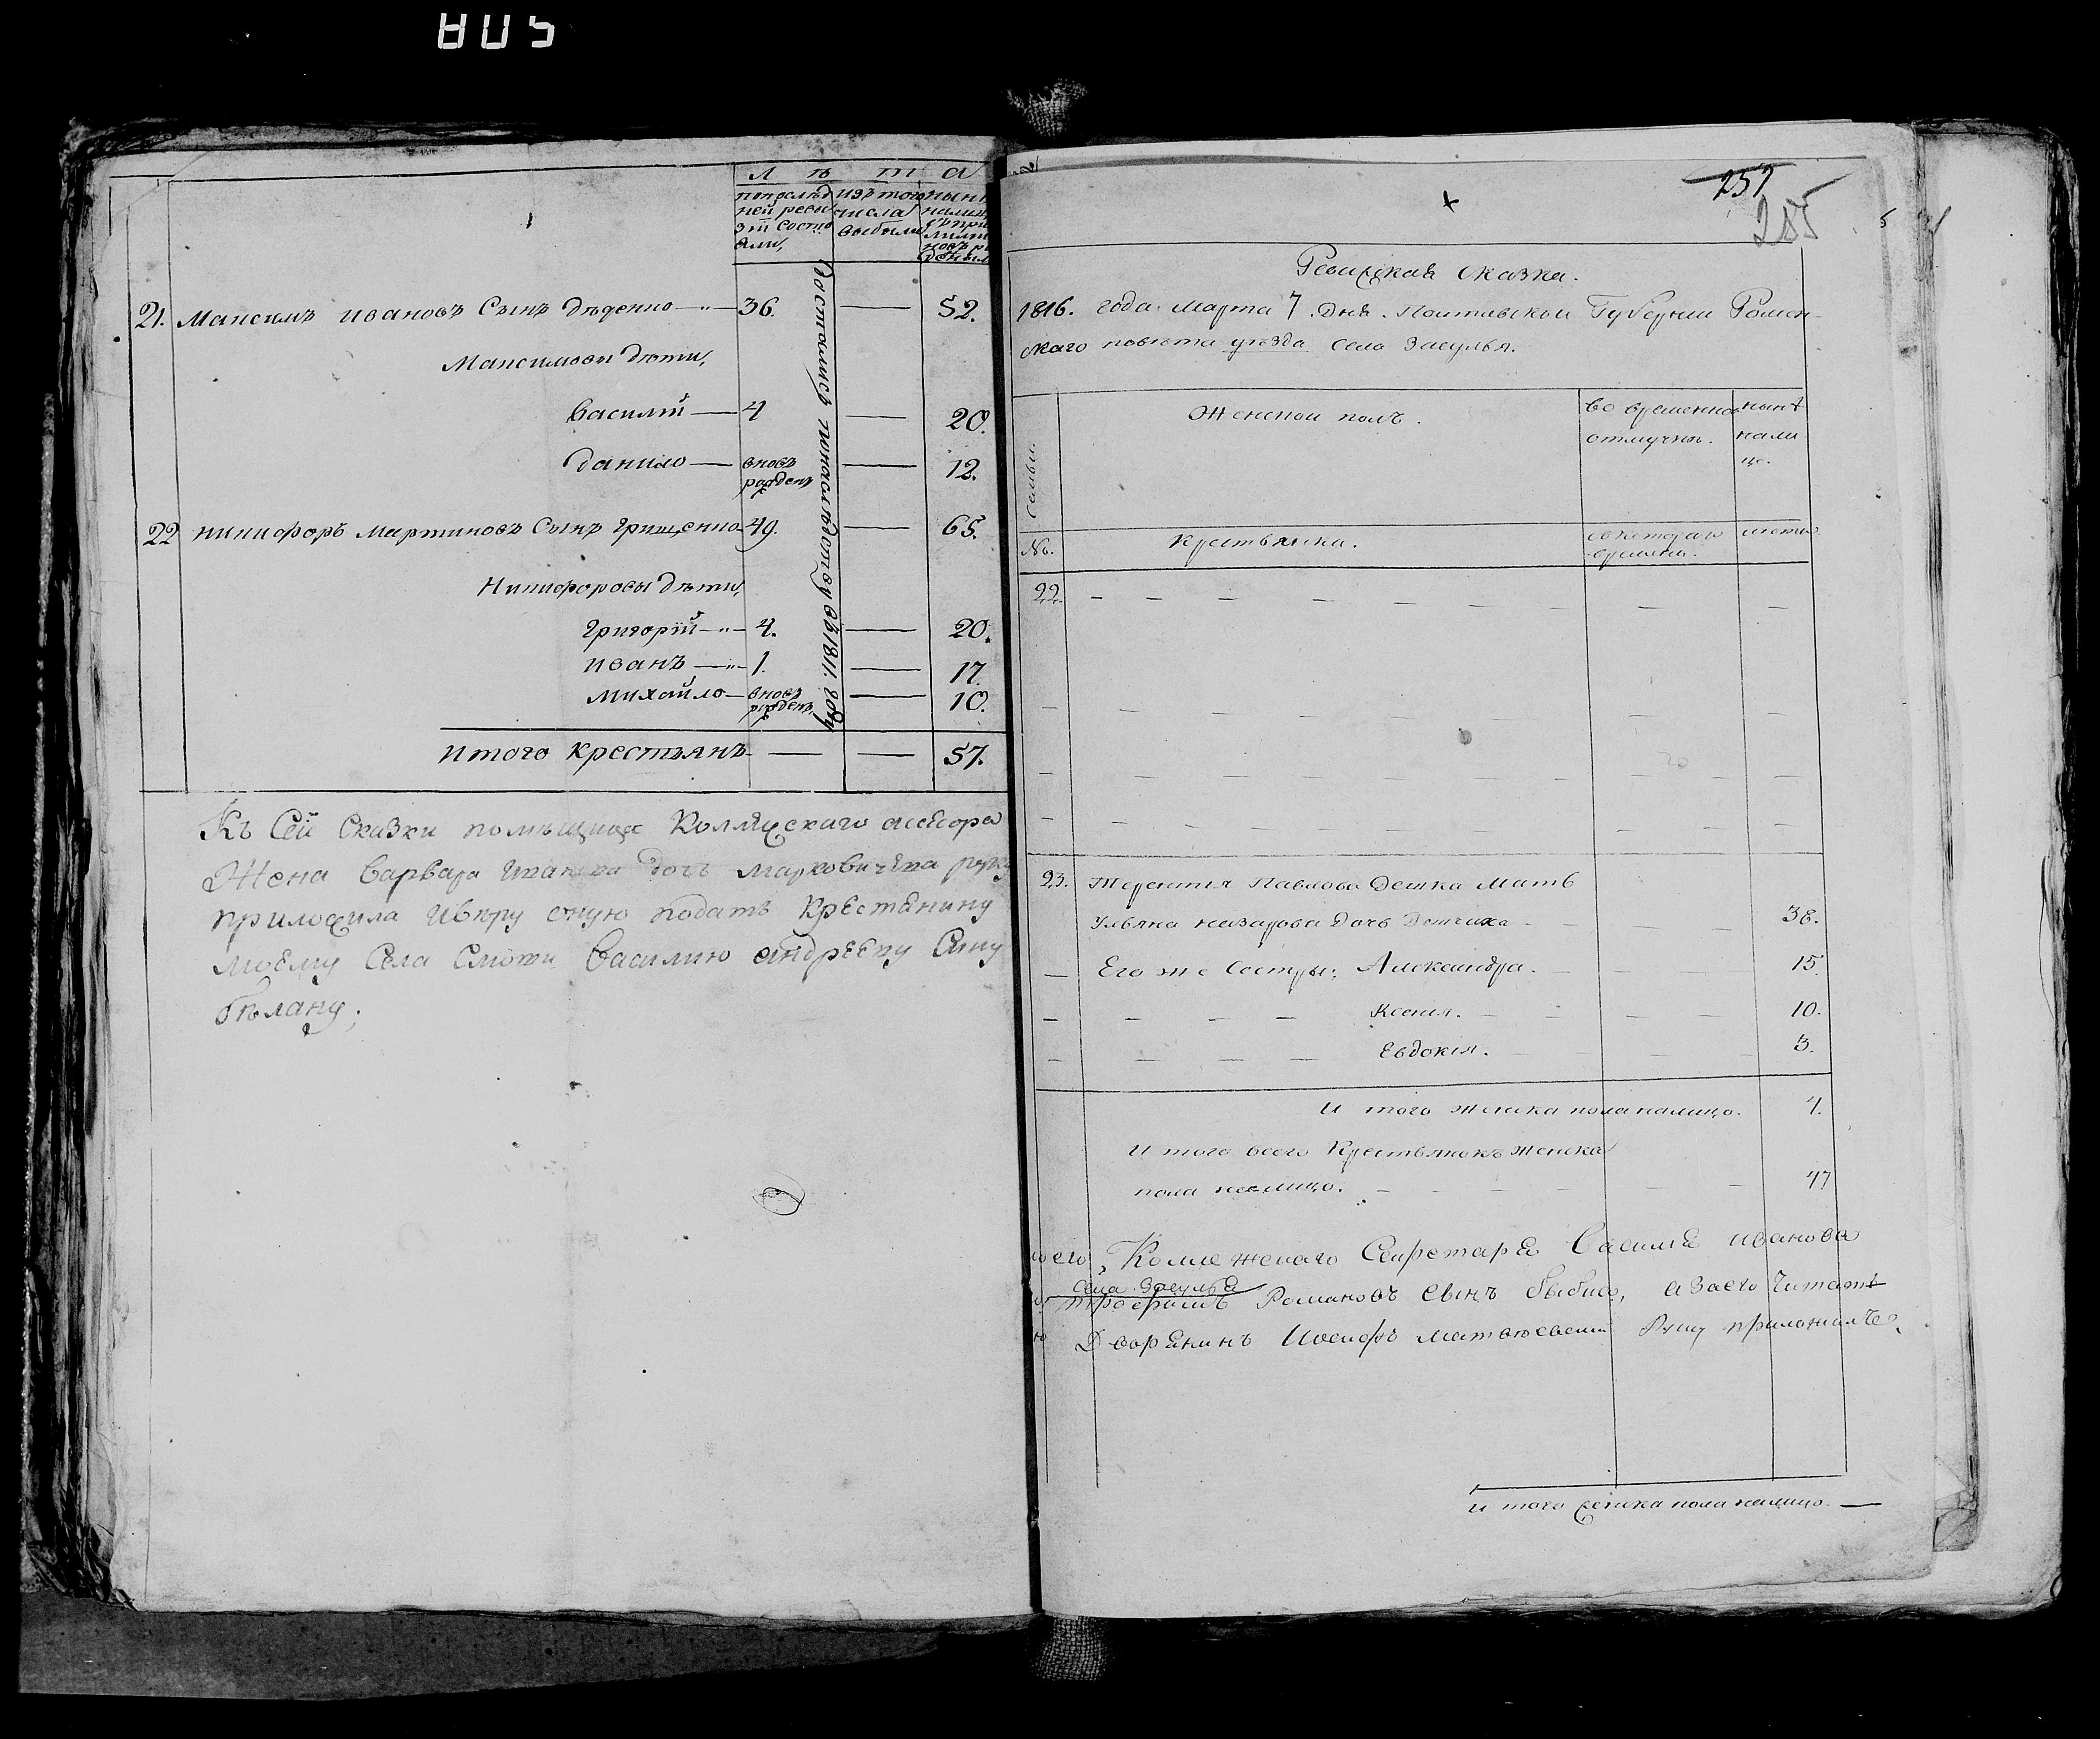 805
Л ѣ т а
по последней ревизіи состояли,
изъ того числа выбыли
ныне налицо
Достались по наследству въ 1811. году
21. Максимъ Ивановъ Сынъ Дѣденко — 36. — 52.
Максимовы дѣти,
Василій — 4 — 20.
Данило — вновь рожденъ — 12.
22 Никифоръ Мартиновъ Сынъ Грищенко 49. — 65.
Никифоровы дѣти,
Григорій — 4. — 20.
Иванъ — 1. — 17.
Михайло — вновь рожденъ — 10.
Итого крестьянъ — — 57.
Къ Сей Сказки помѣщица Колляскаго асесора
Жена Варвара дочь Марковичева руку
приложила и вѣру оную подать крестянину
моему Села Василию андрееву Сину
Бѣлану;
257
285
Ревизская сказка.
1816. года Марта 7. дня. Полтавской Губерніи Ромен-
скаго повѣта уѣзда села Засулья.
Семьи.
Женской полъ.
во временной отлучкѣ.
нынѣ на лицо.
№.
Крестьянки.
съ котораго времени.
лета
22. — — — — — — — — —
23. Терентія Павлова Дешка Мать
Ульяна Назарова Дочь Дешчиха — — — 38.
— Его же Сестры: Александра. — — 15.
— — — — Ксенія. — — — — 10.
— — — — Евдокія. — — — 3.
И того женска пола налицо. 4.
И того всего Крестьянокъ женска
пола налицо. — — — — — — 47
Коллежскаго Секретаря Василия Иванова
Села Засулья
Романовъ Сынъ а за его
Дворянинъ Иосифъ Руку приложилъ.
И того женска пола налицо. —